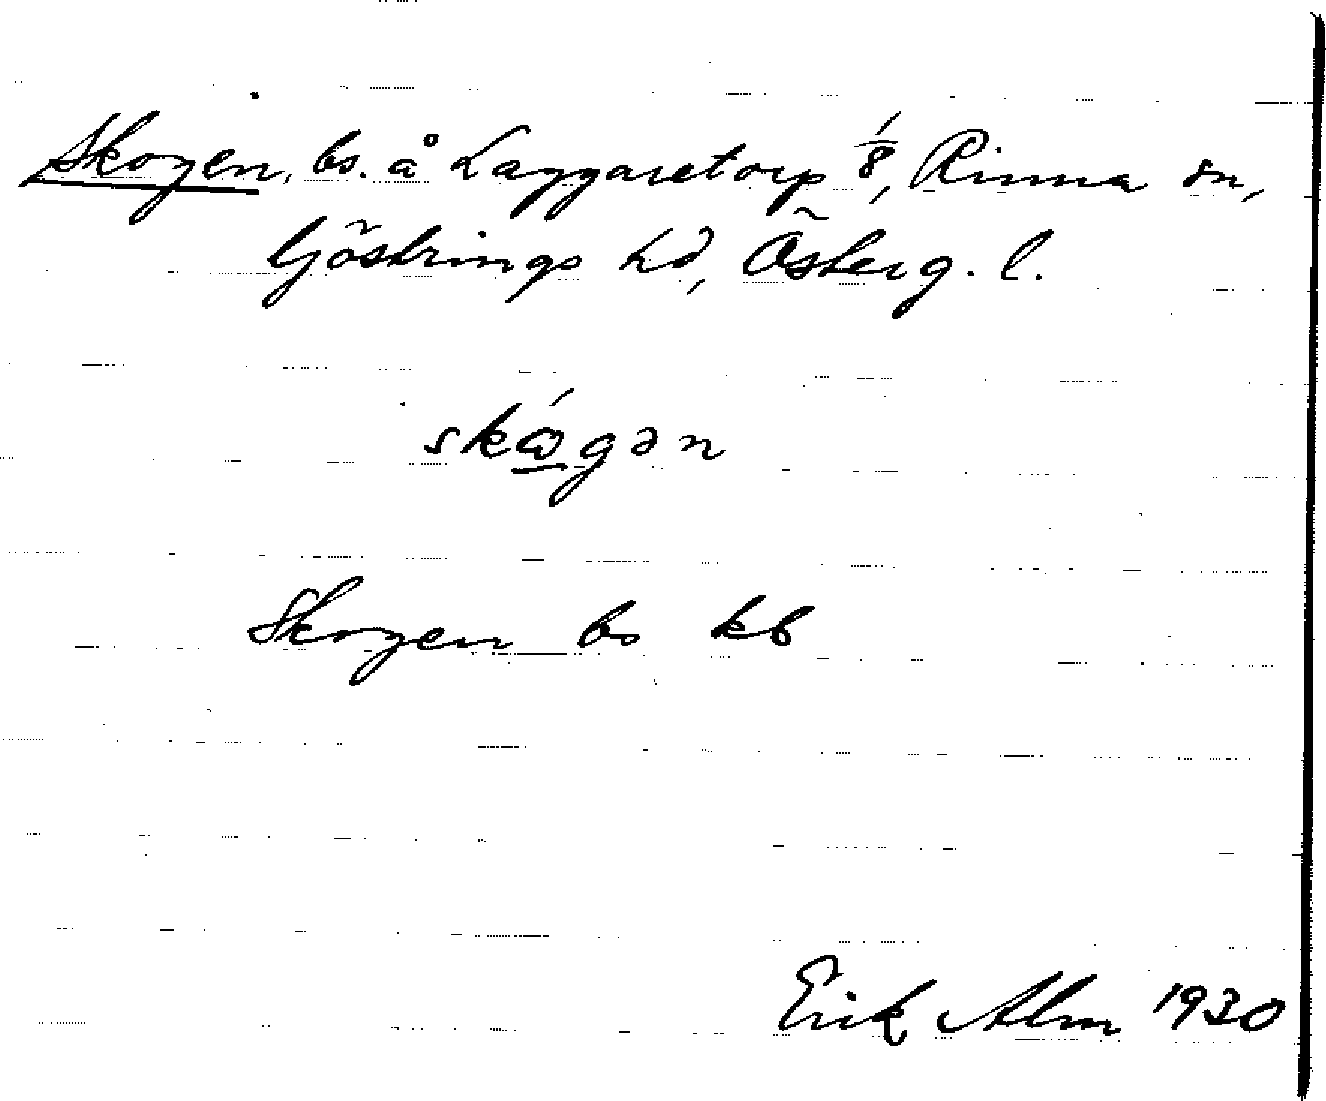 Skogen, bs. å Laggaretorp 1/8, Rinna sn,
Göstrings hd, Österg. l.
skώ̲gən
Skogen bs kb
Erik Alm 1930